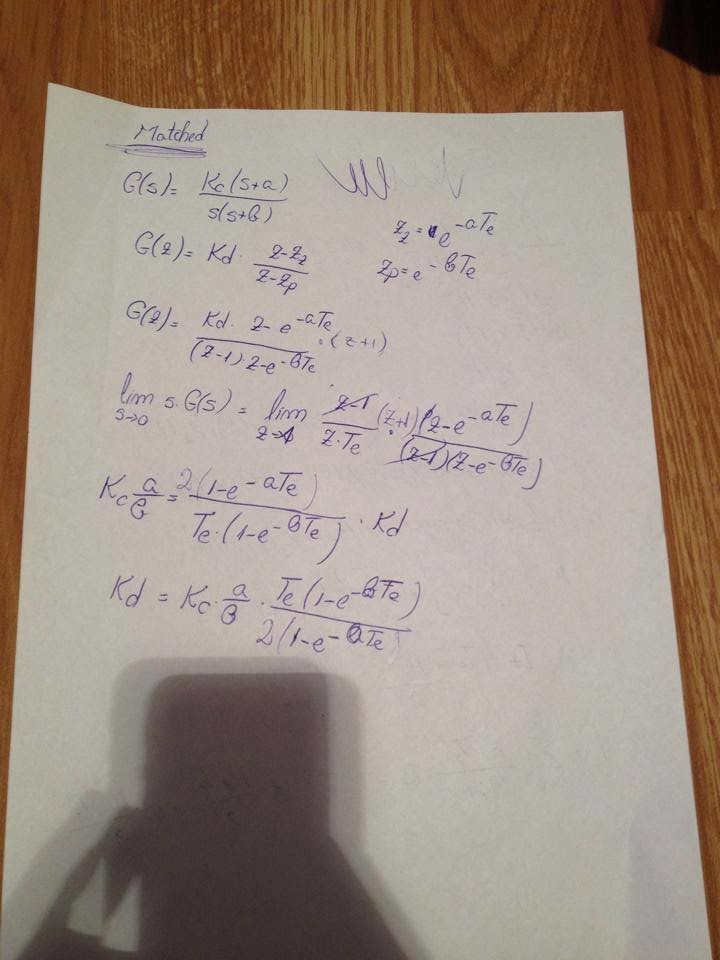 Matched
G(s)= Kc(s+a) / s(s+b)
z_z = e^-aTe
G(z)= Kd · z-z_z / z-z_p
z_p = e^-bTe
G(z)= Kd· z-e^-aTe / (z-1)·z-e^-bTe ·(z+1)
lim s→0 s·G(s) = lim z→1 z-1 / z·Te · (z+1)(z-e^-aTe) / (z-1)(z-e^-bTe)
Kc a/b = 2(1-e^-aTe) / Te·(1-e^-bTe) · Kd
Kd = Kc· a/b · Te(1-e^-bTe) / 2(1-e^-aTe)